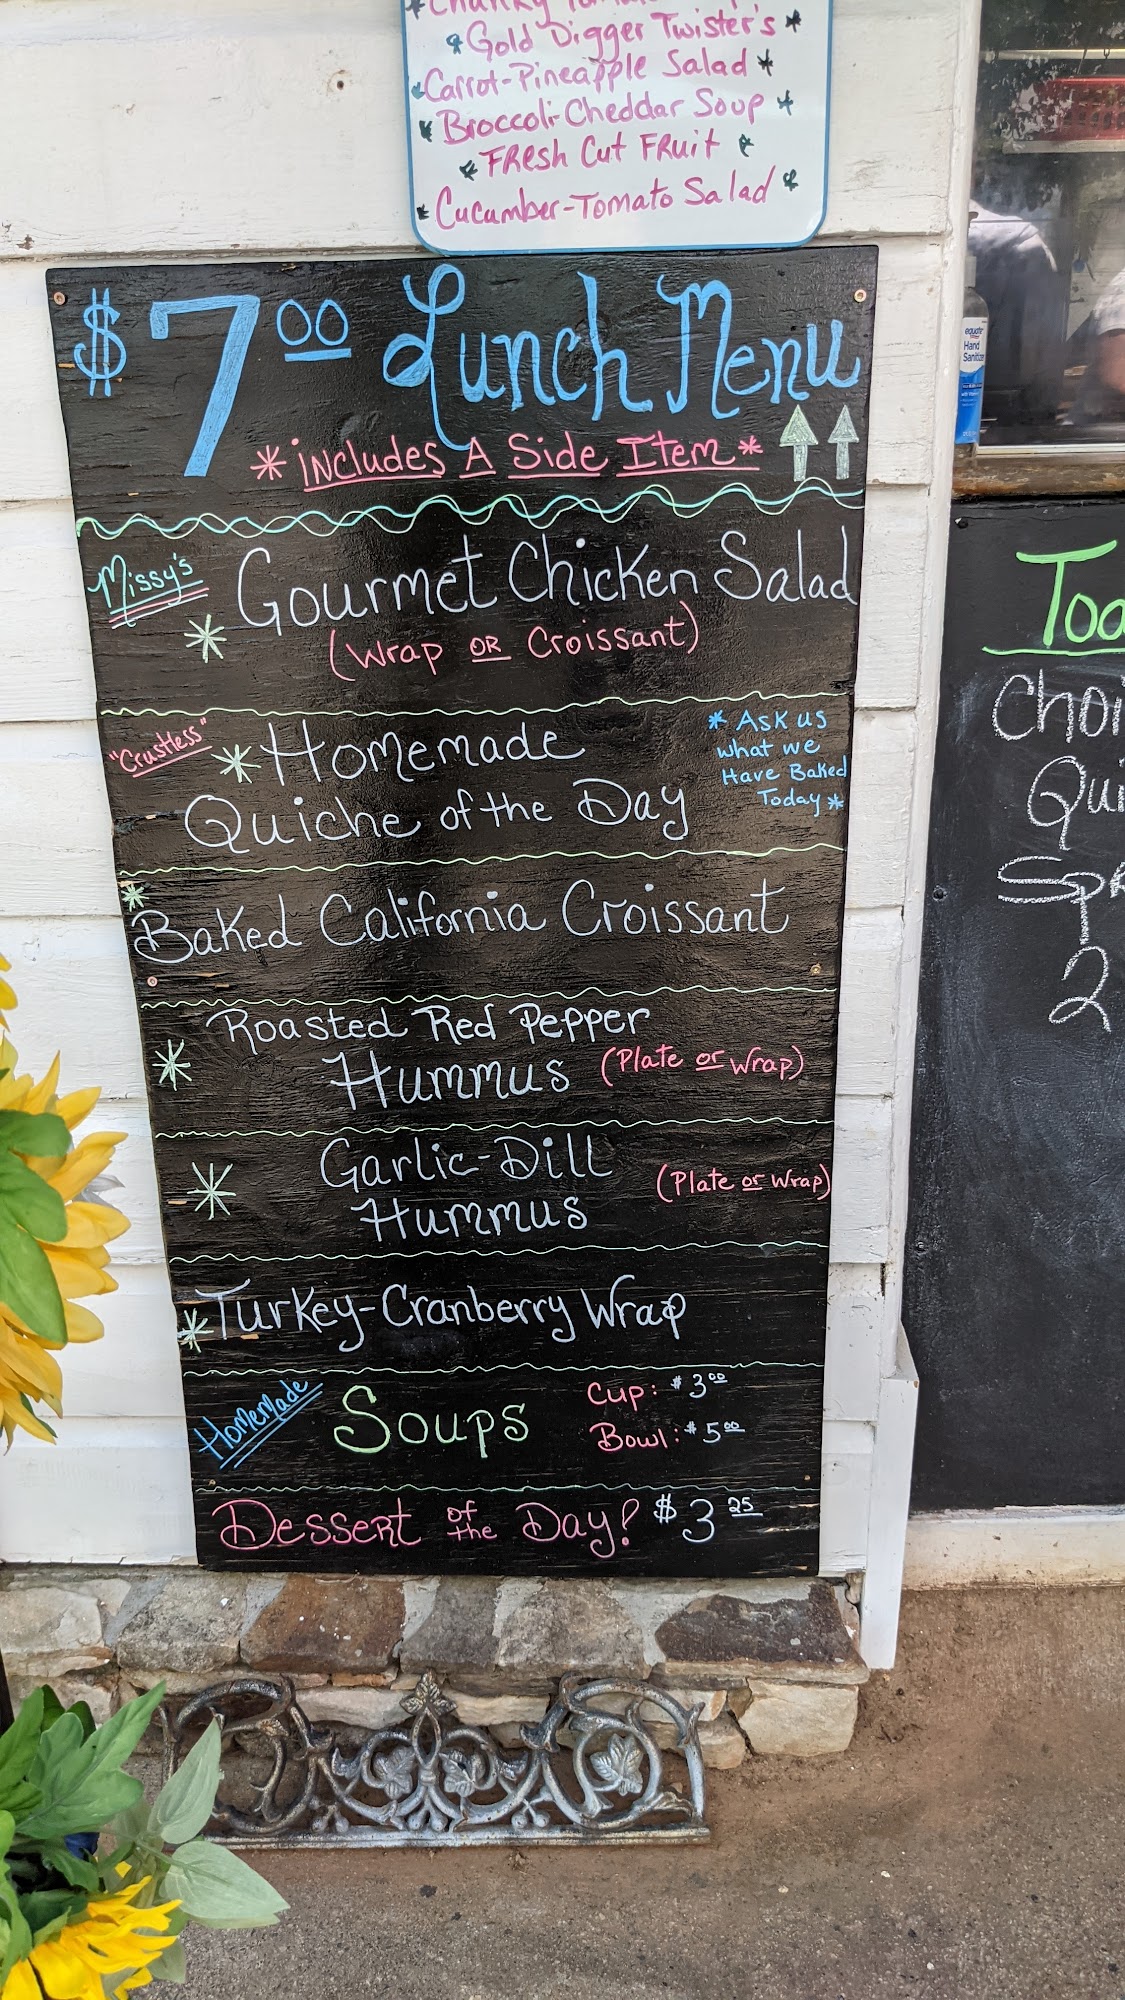 *Gold Digger Twister's*
*Carrot-Pineapple Salad*
*Broccoli-Cheddar Soup*
*Fresh Cut Fruit*
*Cucumber-Tomato Salad*
$7.00 Lunch Menu
*includes A Side Item*
Missy's
*Gourmet Chicken Salad
(Wrap or Croissant)
"Crustless"
*Homemade
Quiche of the Day
*Ask us
what we
Have Baked
Today*
*Baked California Croissant
*Roasted Red Pepper
Hummus (Plate or Wrap)
*Garlic-Dill
Hummus (Plate or Wrap)
*Turkey-Cranberry Wrap
Homemade Soups
Cup: $3.00
Bowl: $5.00
Dessert of the Day! $3.25
equate
Hand
2